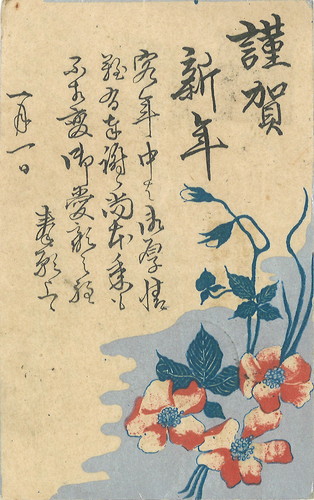 謹賀
新年
客年中は御厚情
難有奉謝候尚本年も
不相変御愛顧之程
奉願上
一月一日